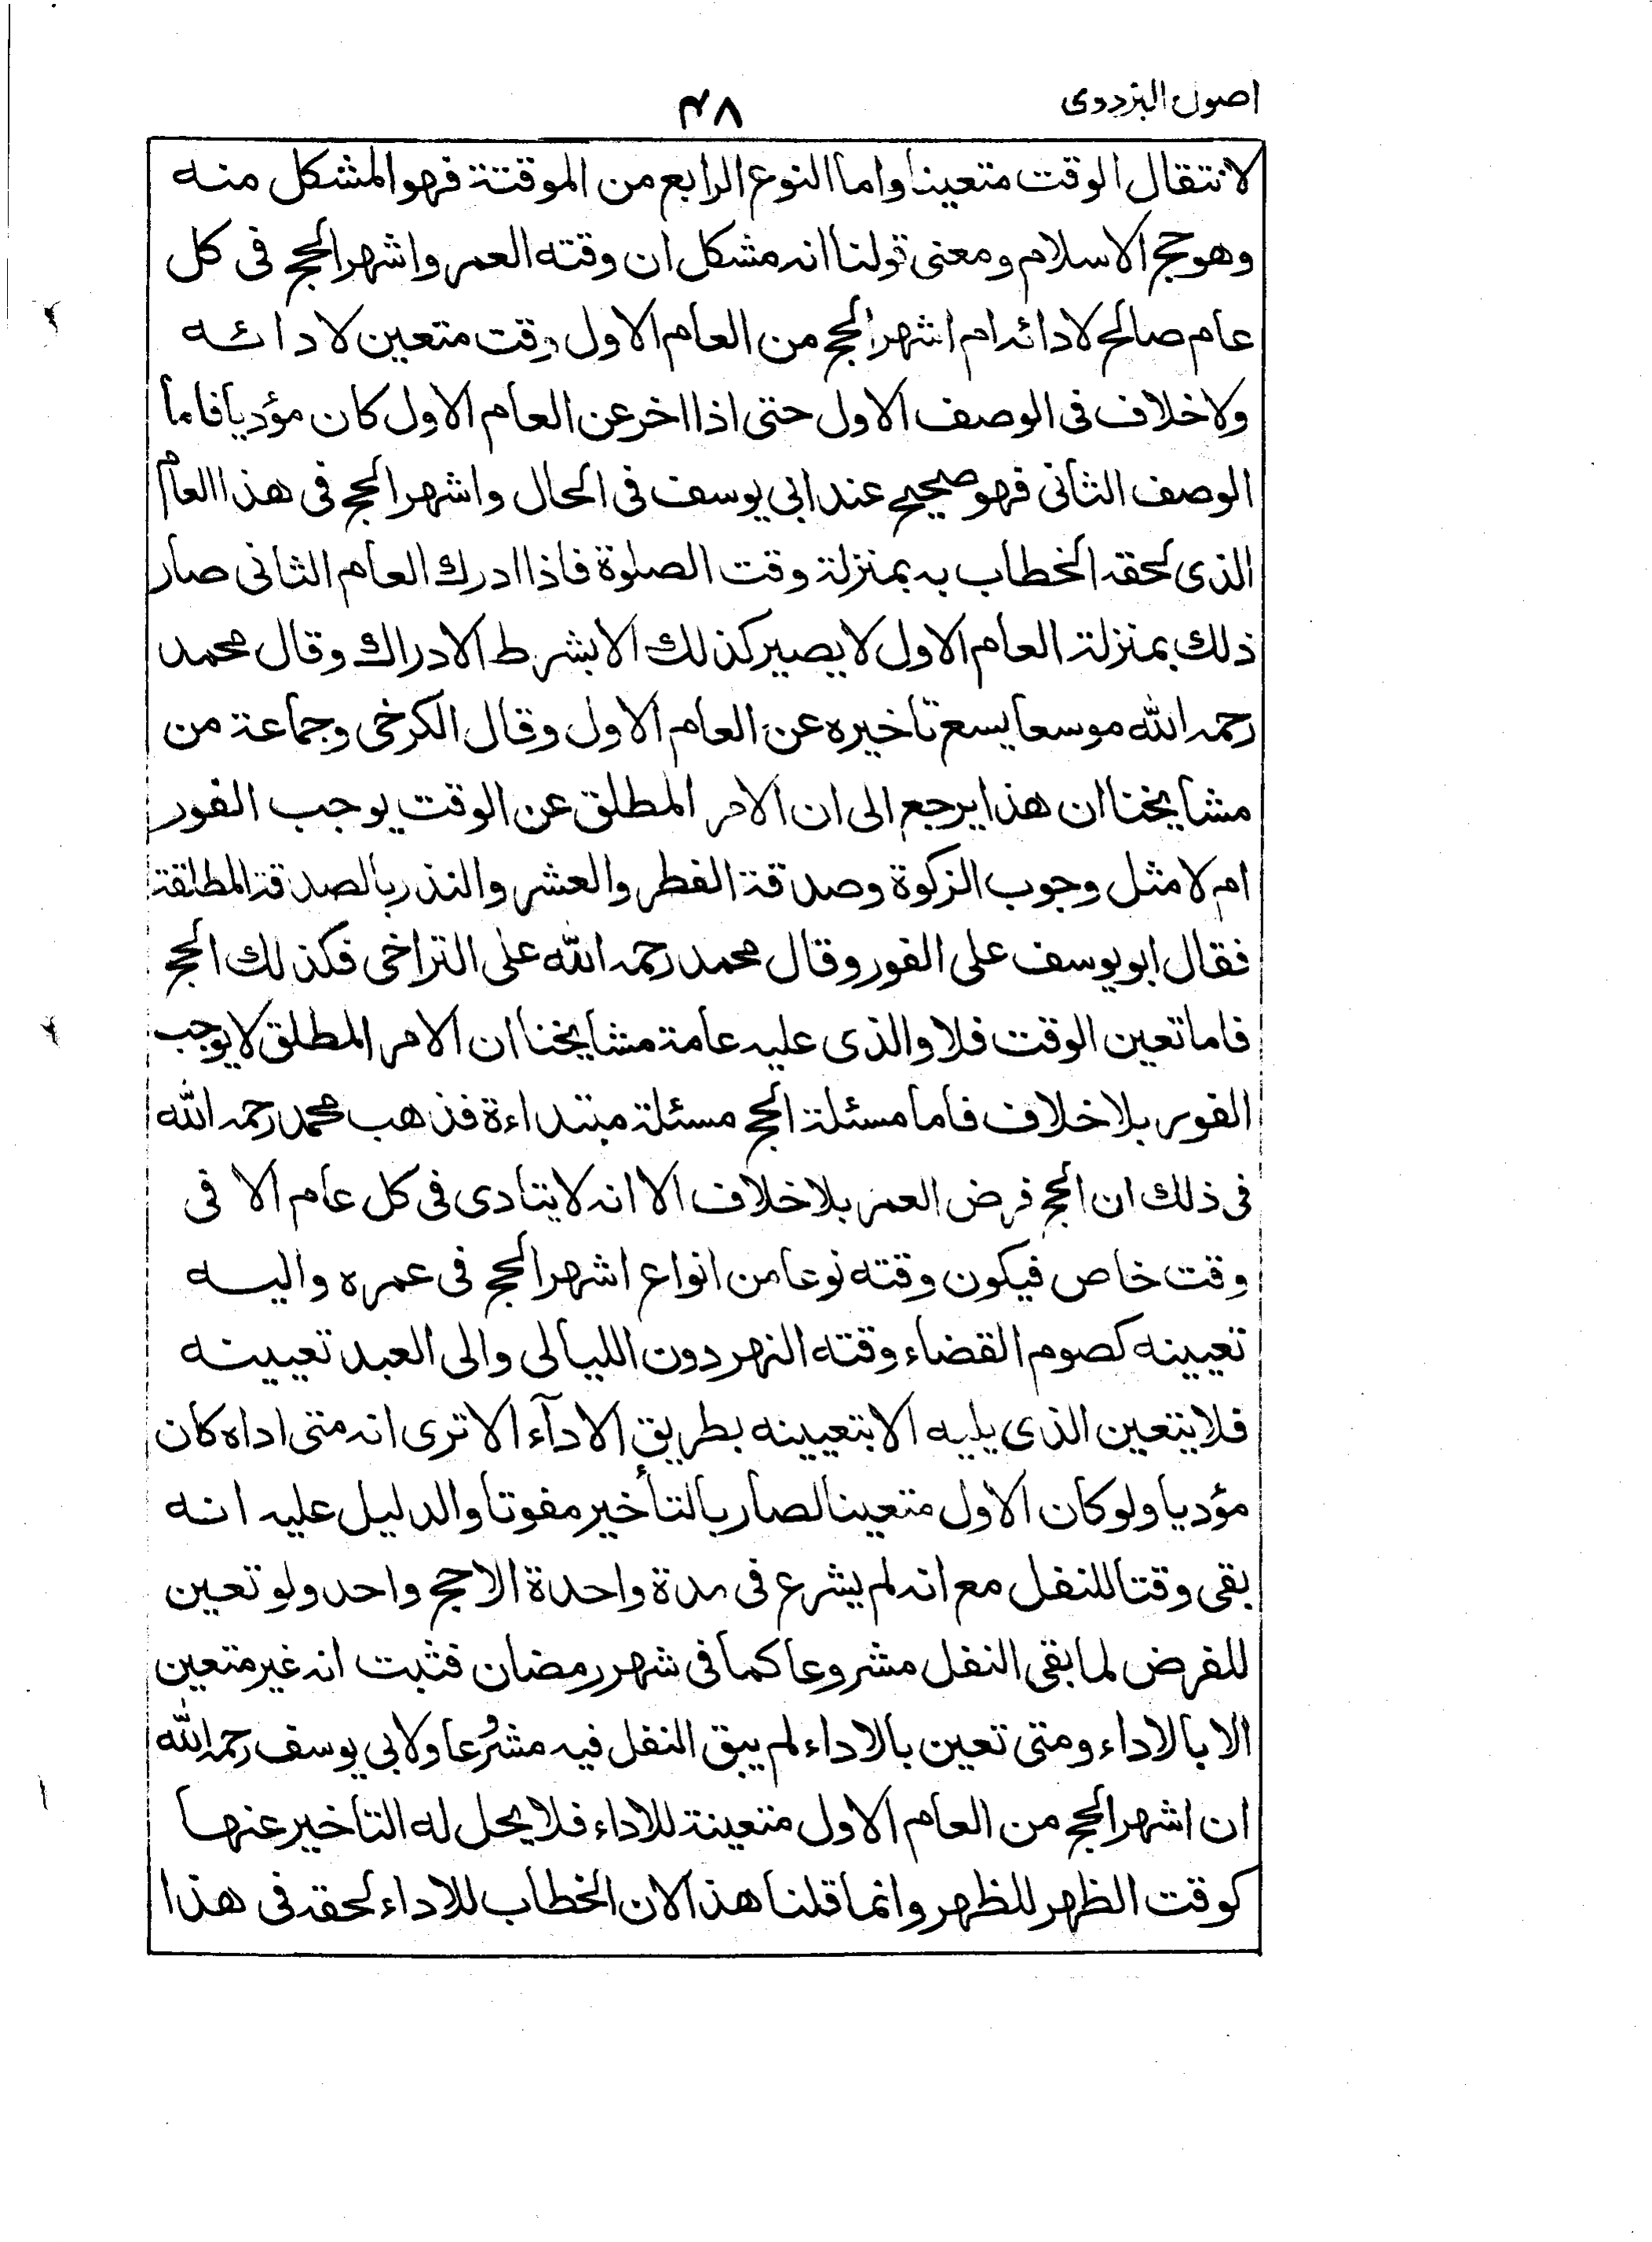 اصول البزدوى
٤٨
لانتقال الوقت متعينا واما النوع الرابع من الموقتة فهو المشكل منه
وهو حج الاسلام ومعنى قولنا انه مشكل ان وقته العمر واشهر الحج فى كل
عام صالح لادائه ام اشهر الحج من العام الاول وقت متعين لادائه
ولا خلاف فى الوصف الاول حتى اذا اخر عن العام الاول كان مؤديا فاما
الوصف الثانى فهو صحيح عند ابى يوسف فى الحال واشهر الحج فى هذا العام
الذى لحقه الخطاب به بمنزلة وقت الصلوة فاذا ادرك العام الثانى صار
ذلك بمنزلة العام الاول لا يصير كذلك الا بشرط الادراك وقال محمد
رحمه الله موسعا يسع تاخيره عن العام الاول وقال الكرخى وجماعة من
مشايخنا ان هذا يرجع الى ان الامر المطلق عن الوقت يوجب الفور
ام لا مثل وجوب الزكوة وصدقة الفطر والعشر والنذر بالصدقة المطلقة
فقال ابو يوسف على الفور وقال محمد رحمه الله على التراخى فكذلك الحج
فاما تعين الوقت فلا والذى عليه عامة مشايخنا ان الامر المطلق لا يوجب
الفور بلا خلاف فاما مسئلة الحج مسئلة مبتداءة فذهب محمد رحمه الله
فى ذلك ان الحج فرض العمر بلا خلاف الا انه لا يتادى فى كل عام الا فى
وقت خاص فيكون وقته نوعا من انواع اشهر الحج فى عمره واليه
تعيينه كصوم القضاء وقته النهر دون الليالى والى العبد تعيينه
فلا يتعين الذى يليه الا بتعيينه بطريق الادآء الا ترى انه متى اداه كان
مؤديا ولو كان الاول متعينا لصار بالتأخير مفوتا والدليل عليه انه
بقى وقتا للنفل مع انه لم يشرع فى مدة واحدة الا حج واحد ولو تعين
للفرض لما بقى النفل مشروعا كما فى شهر رمضان فثبت انه غير متعين
الا بالاداء ومتى تعين بالاداء لم يبق النفل فيه مشروعا ولابى يوسف رحمه الله
ان اشهر الحج من العام الاول متعينة للاداء فلا يحل له التاخير عنها
كوقت الظهر للظهر وانما قلنا هذا لان الخطاب للاداء لحقه فى هذا